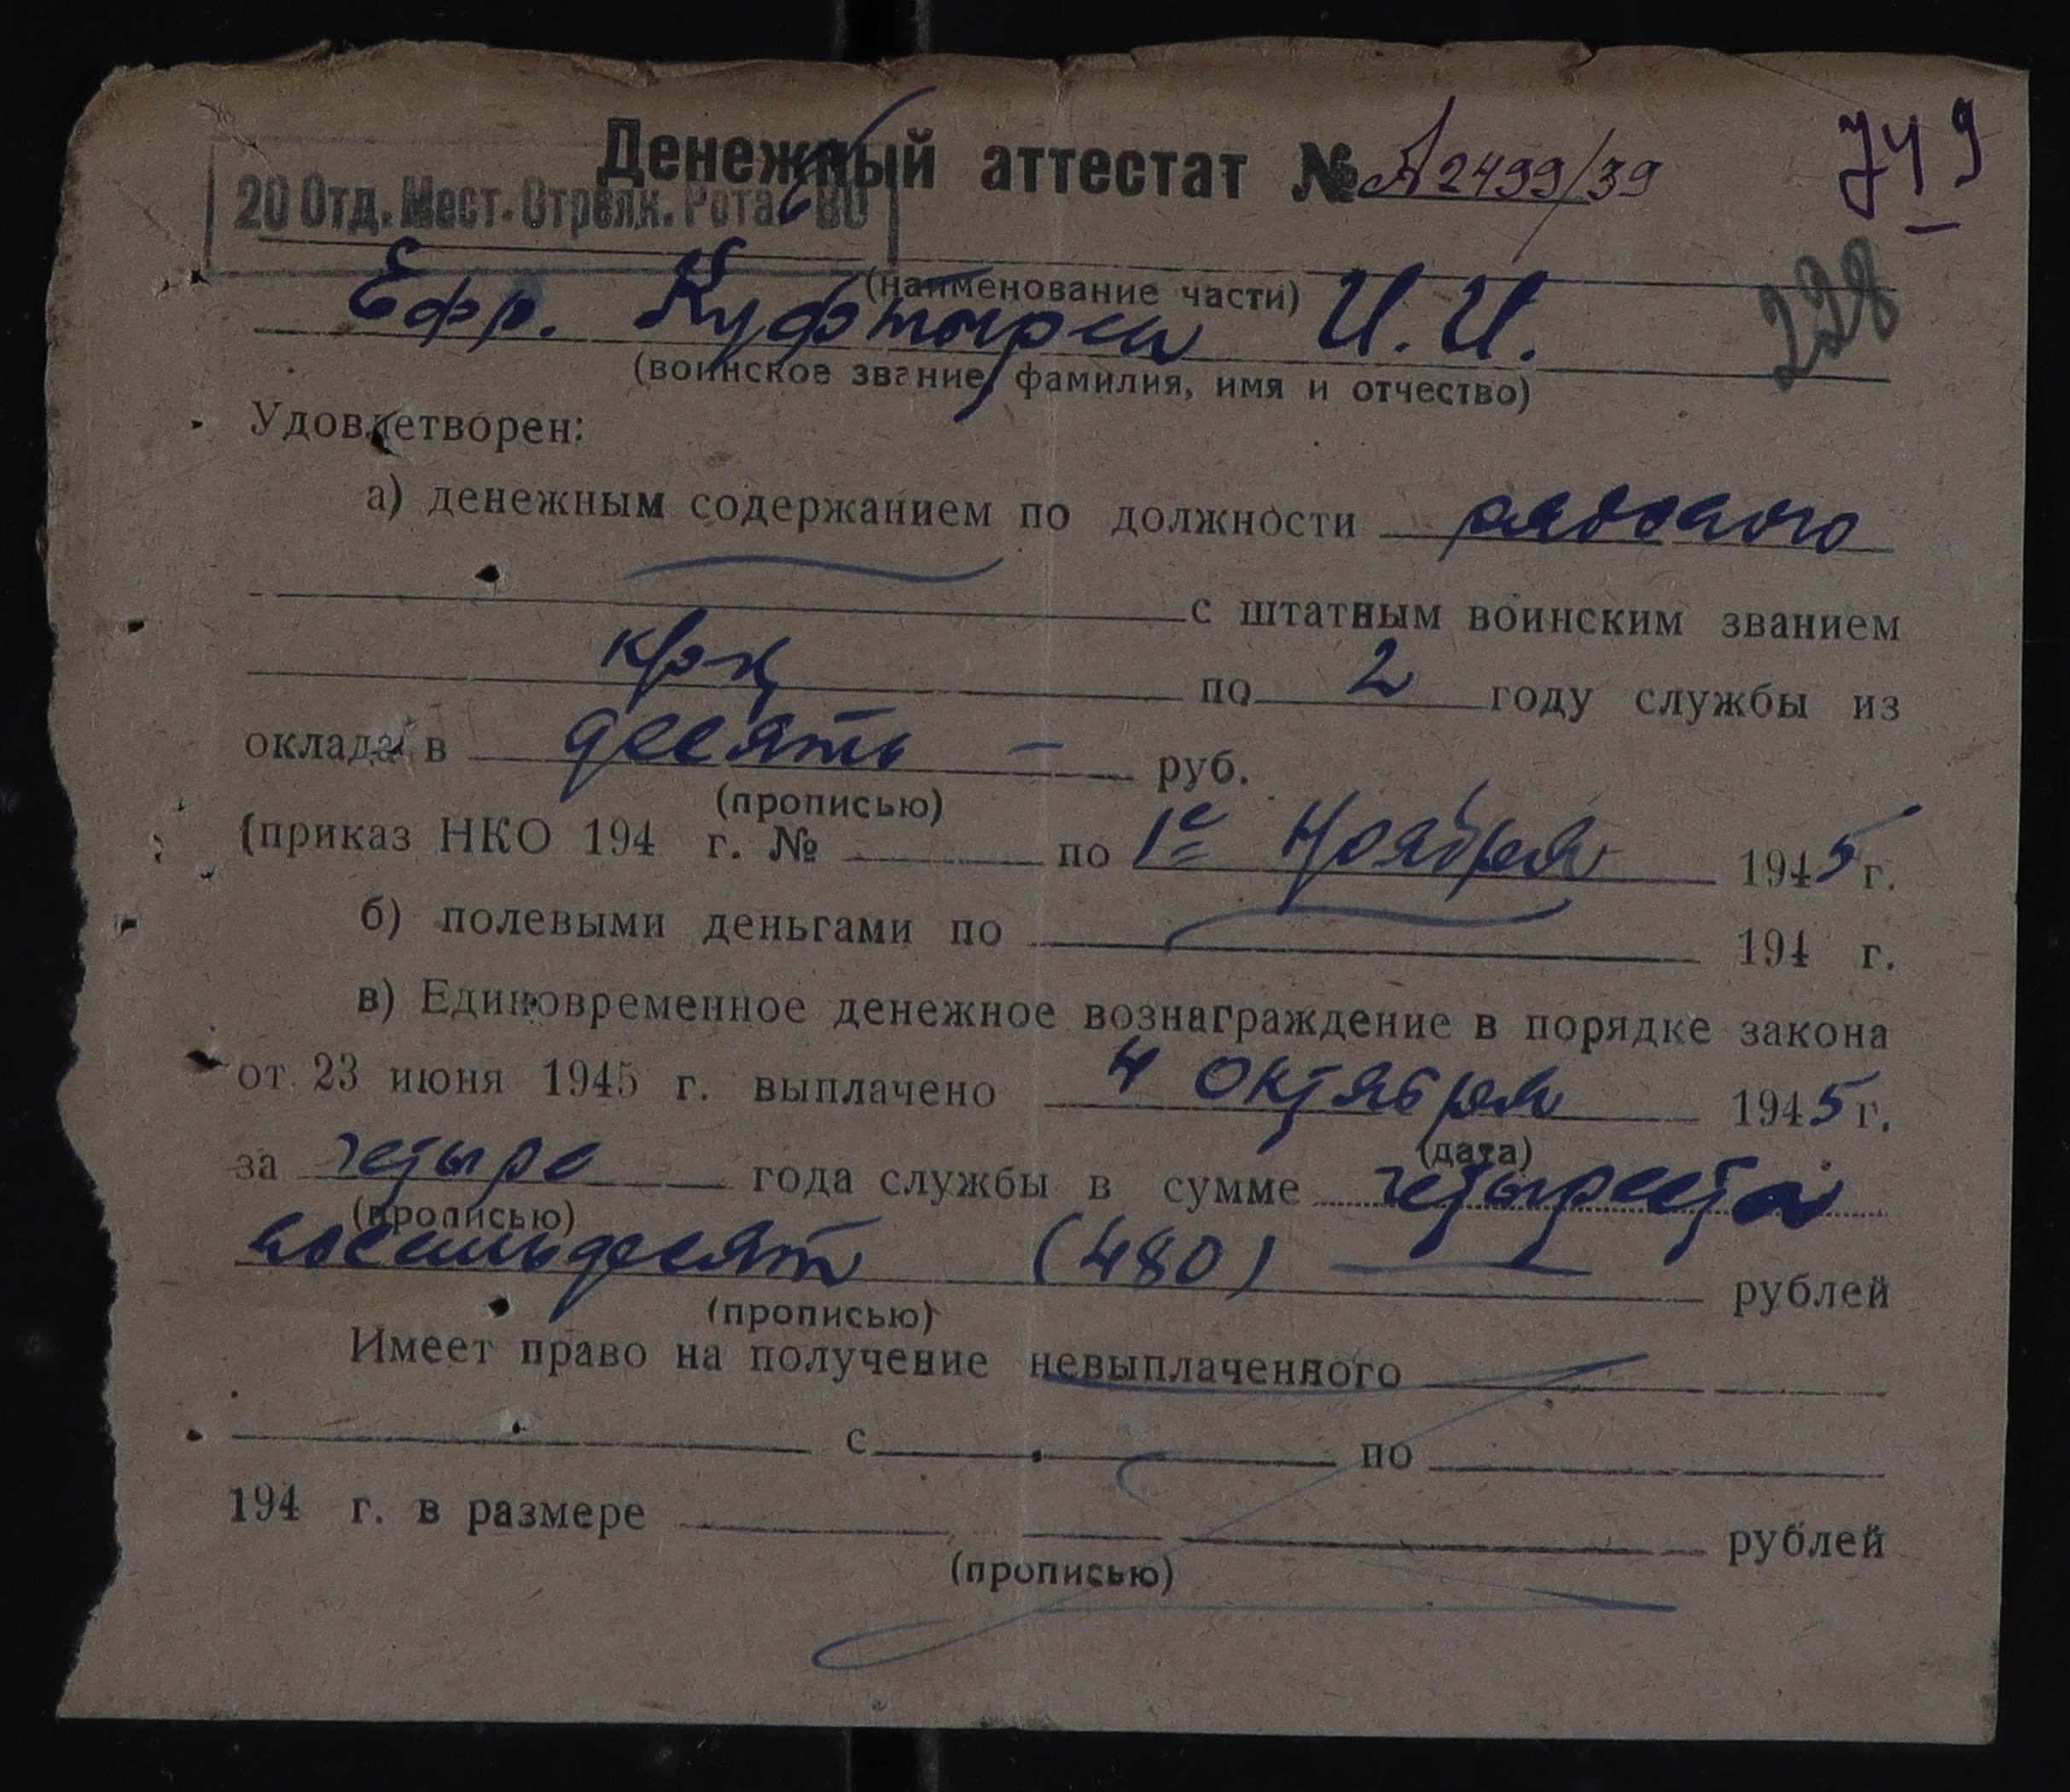 Денежный аттестат № А2499/39
749
20 Отд. Мест. Стрелк. Рота ВО
(наименование части)
228
Ефр. И. И.
(воинское звание, фамилия, имя и отчество)
Удовлетворен:
а) денежным содержанием по должности рядового
с штатным воинским званием
кр-ц по 2 году службы из
оклада в десять — руб.
(прописью)
(приказ НКО 194 г. № по 1е Ноября 1945 г.
б) полевыми деньгами по 194 г.
в) Единовременное денежное вознаграждение в порядке закона
от 23 июня 1945 г. выплачено 4 октября 1945 г.
(дата)
за четыре года службы в сумме четыреста
(прописью)
восемьдесят (480) — рублей
(прописью)
Имеет право на получение невыплаченного
с по
194 г. в размере рублей
(прописью)